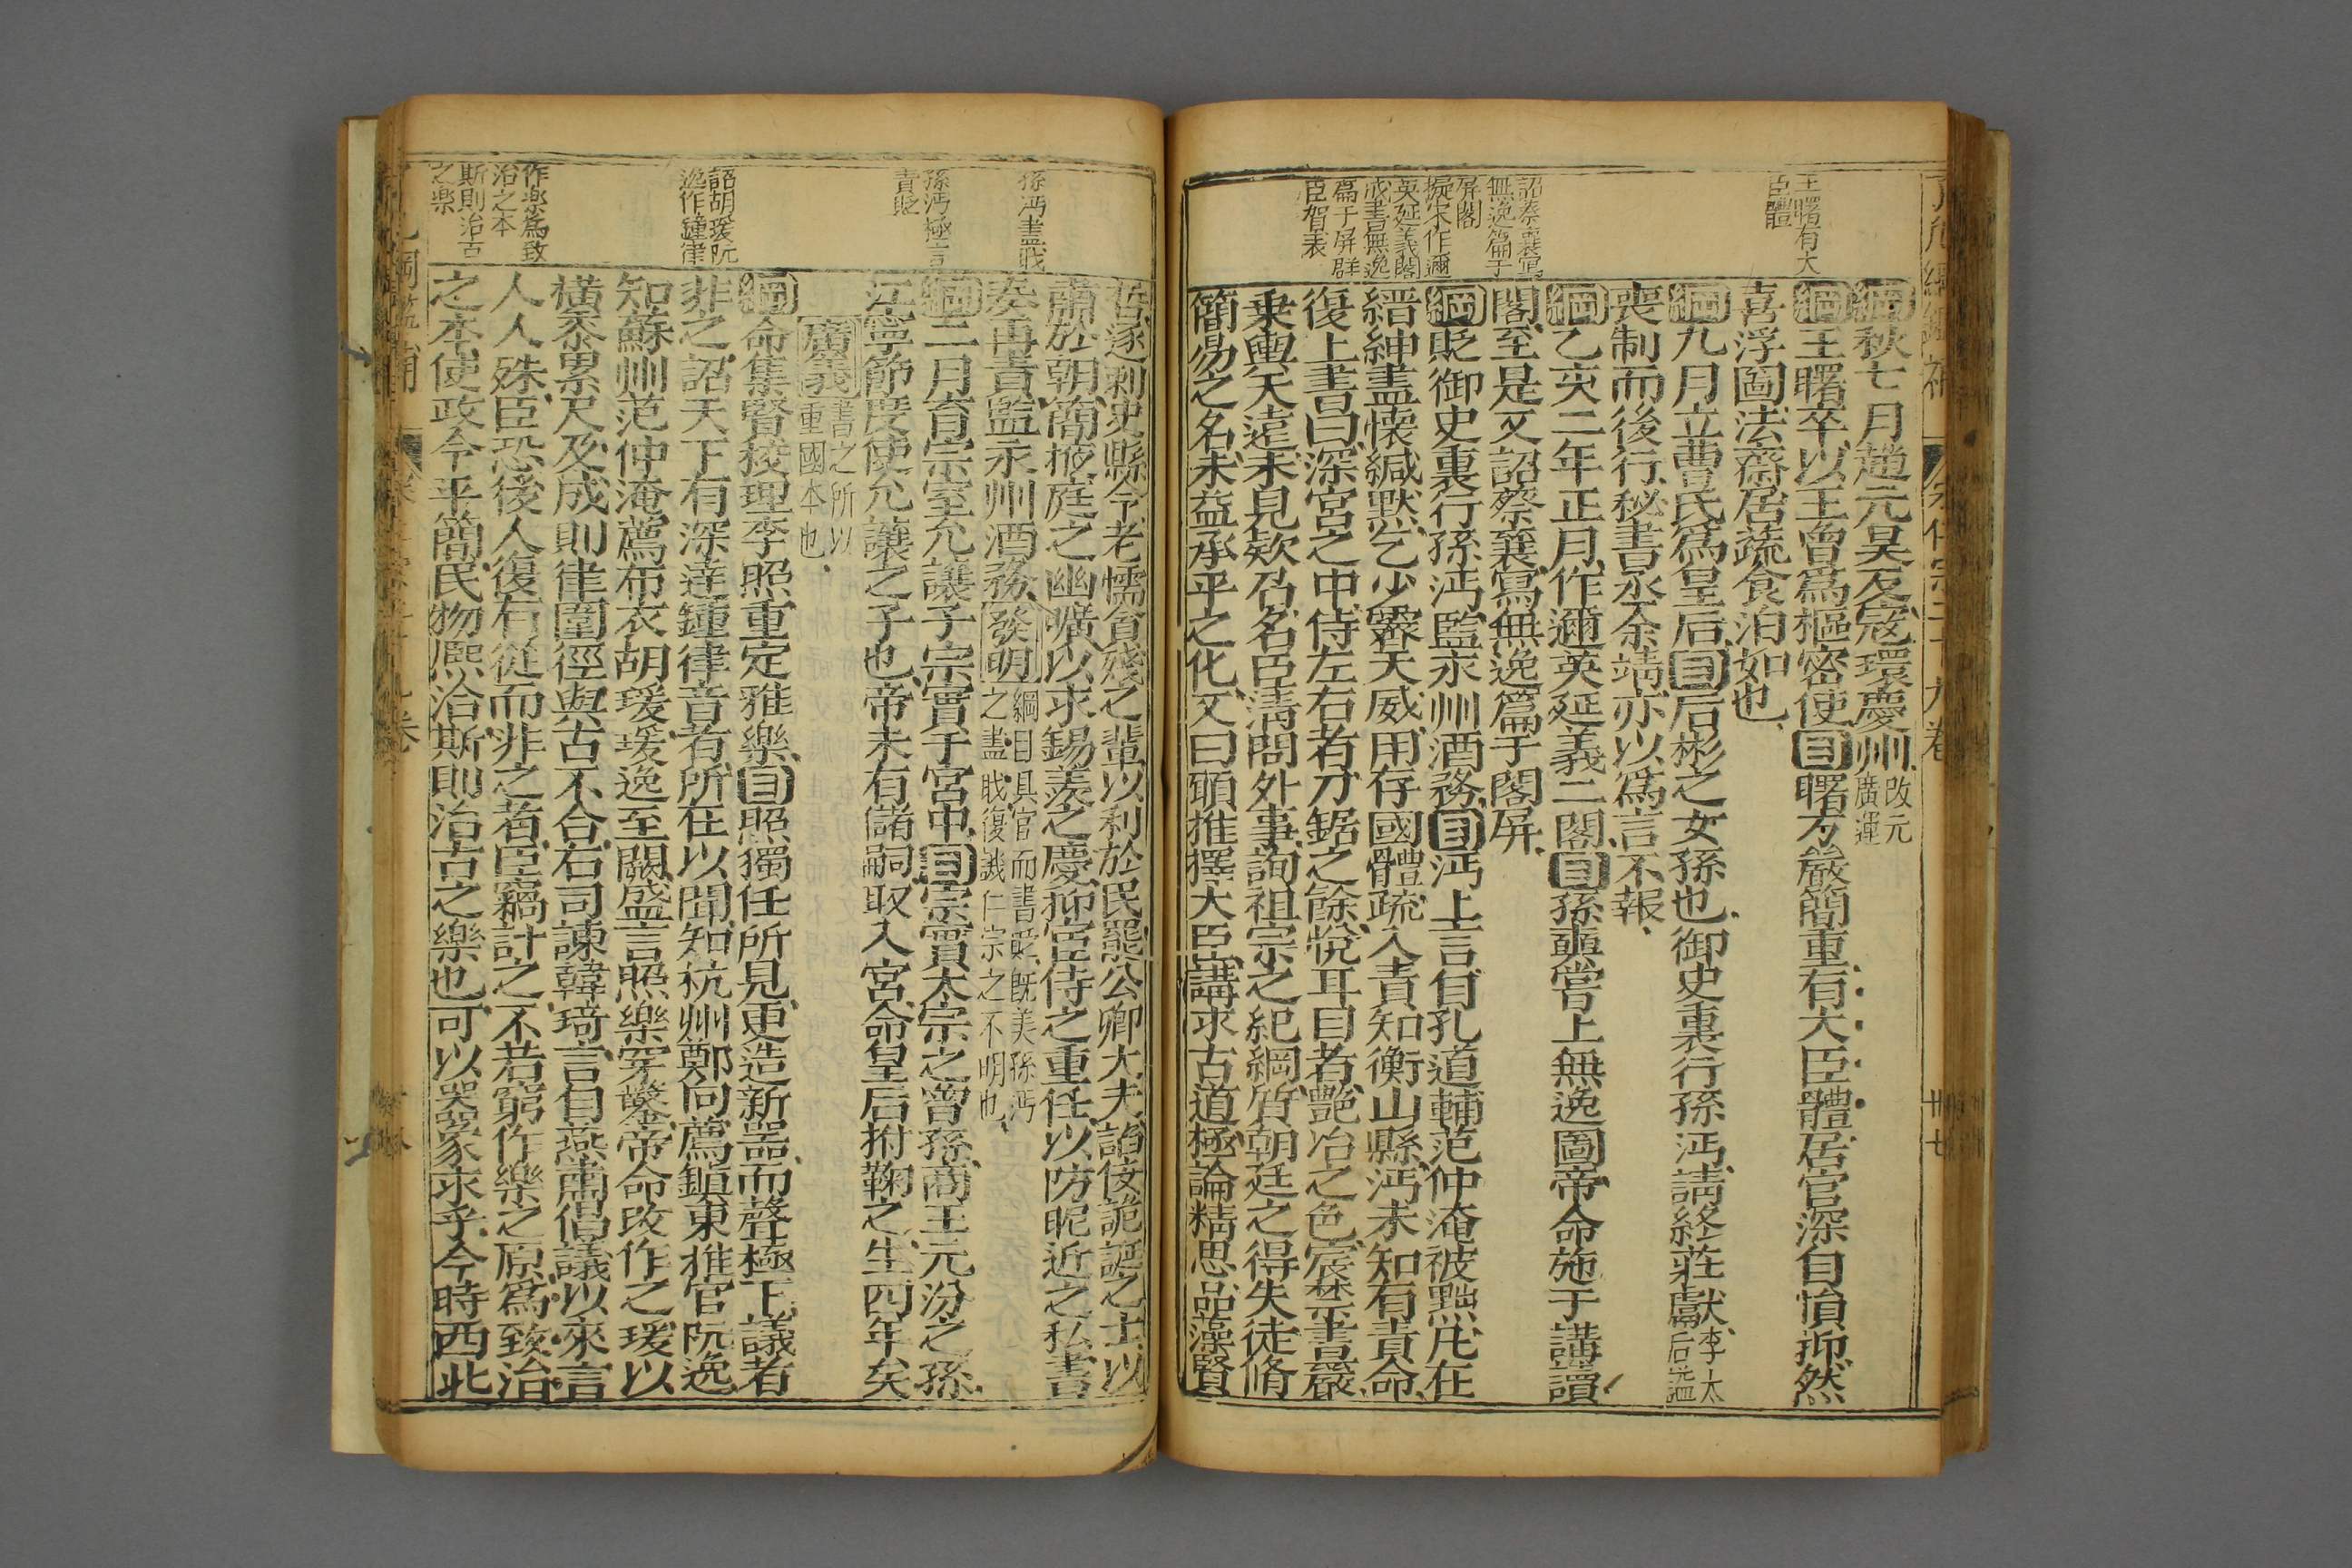 王曙有大
臣體
詔蔡襄寫
無逸篇于
屏閣
擬宋作邇
英延義閣
成書無逸
篇于屏群
臣賀表
綱秋七月趙元昊反寇環慶州改元
廣運
綱王曙卒以王曾爲樞密使目曙方嚴簡重有大臣體居官深自愼抑然
喜浮圖法齋居蔬食泊如也
綱九月立曹氏爲皇后目后彬之女孫也御史裏行孫沔請終莊獻李太
后諡
喪制而後行秘書丞余靖亦以爲言不報
綱乙亥二年正月作邇英延義二閣目孫奭嘗上無逸圖帝命施于講讀
閣至是又詔蔡襄寫無逸篇于閣屏
綱貶御史裏行孫沔監永州酒務目沔上言自孔道輔范仲淹被黜凡在
縉紳盡懷緘默乞少霽天威用存國體疏入責知衡山縣沔未知有責命
復上書曰深宮之中侍左右者刀鋸之餘悅耳目者艶冶之色宸禁書嚴
乗輿天遠未見欵召名臣淸問外事詢祖宗之紀綱質朝廷之得失徒脩
簡易之名未益承平之化又曰願推擇大臣講求古道極論精思品藻賢
孫沔書戢
孫沔極言
責貶
詔胡瑗阮
逸作鍾律
作樂爲致
治之本
斯則治古
之樂
否逐刺史縣令老懦貪殘之輩以利於民罷公卿大夫諂佞詭誕之士以
肅於朝簡掖庭之幽曠以求錫羨之慶抑宦侍之重任以防昵近之私書
奏再責監永州酒務發明綱目具官而書貶旣美孫沔
之盡戢復譏仁宗之不明也
綱二月育宗室允讓子宗實于宮中目宗實太宗之曾孫商王元汾之孫
江寧節度使允讓之子也帝未有儲嗣取入宮命皇后拊鞠之生四年矣
廣義書之所以
重國本也
綱命集賢校理李照重定雅樂目照獨任所見更造新器而聲極下議者
非之詔天下有深達鍾律音者所在以聞知杭州鄭向薦鎭東推官阮逸
知蘇州范仲淹薦布衣胡瑗瑗逸至闕盛言照樂穿鑿帝命改作之瑗以
橫黍累尺及成則律圍徑與古不合右司諫韓琦言自燕肅倡議以來言
人人殊臣恐後人復有從而非之者臣竊計之不若窮作樂之原爲致治
之本使政令平簡民物熈洽斯則治古之樂也可以器象求乎今時西北